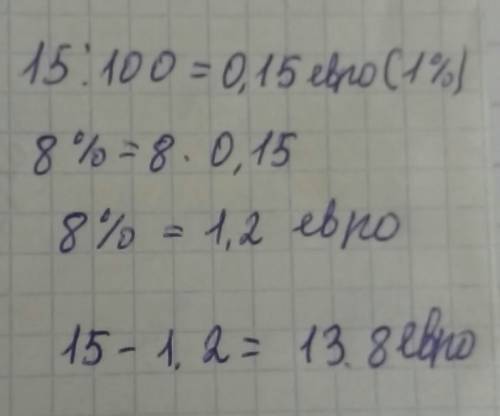 15 : 100 = 0,15 евро (1%)
8% = 8 · 0,15
8% = 1,2 евро
15 - 1,2 = 13.8 евро